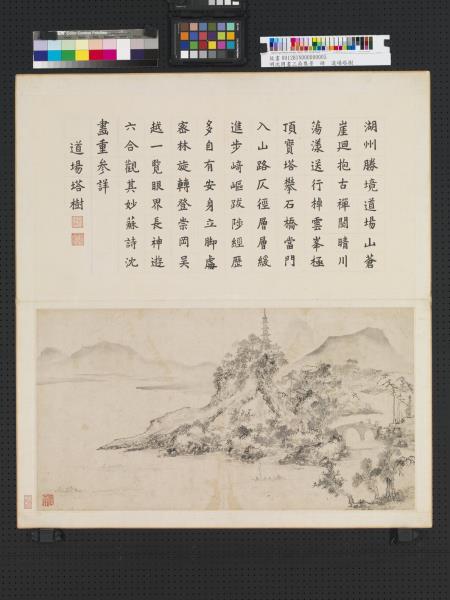 湖州勝境道場山蒼
崖迴抱古禪關晴川
蕩漾送行棹雲峯極
頂寳塔攀石橋當門
入山路仄徑層層緩
進步﨑嶇跋陟經歷
多自有安身立脚處
密林旋轉登崇岡吴
越一覽眼界長神遊
六合觀其妙蘇詩沈
畫重參詳
道場塔樹